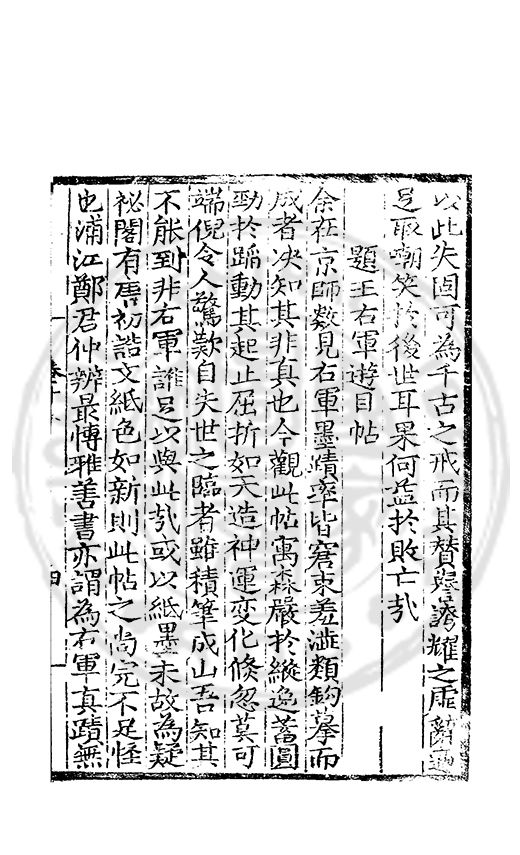 以此失國可為千古之戒而其贊譽誇耀之虛辭適
足取嘲笑於後世耳果何益於敗亡㢤
題王右軍遊目帖
余在京師数見右軍墨蹟率皆窘束羞澁類鈎摹而
成者决知其非真也今觀此帖寓森嚴於縱逸蓄圓
勁於蹈動其起止屈折如天造神運变化倏忽莫可
端倪令人驚歎自失世之臨者雖積筆成山吾知其
不能到非右軍誰足以與此㢤或以紙墨未故為疑
祕閣有唐初誥文紙色如新則此帖之尚完不足怪
也浦江鄭君仲辨最博雅善書亦謂為右軍真蹟無
四